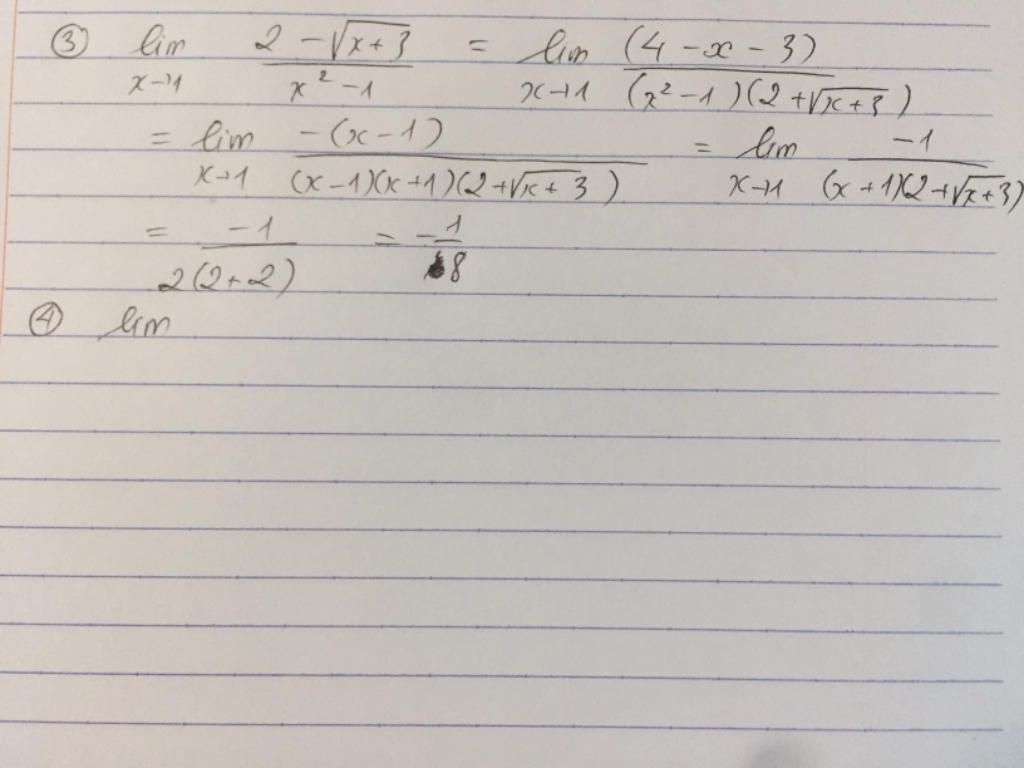 ③ lim x→1 (2 - √(x+3))/(x² - 1) = lim x→1 (4 - x - 3)/((x² - 1)(2 + √(x+3)))
= lim x→1 -(x - 1)/((x-1)(x+1)(2+√(x+3))) = lim x→1 -1/((x+1)(2+√(x+3)))
= -1/(2(2+2)) = -1/8
④ lim